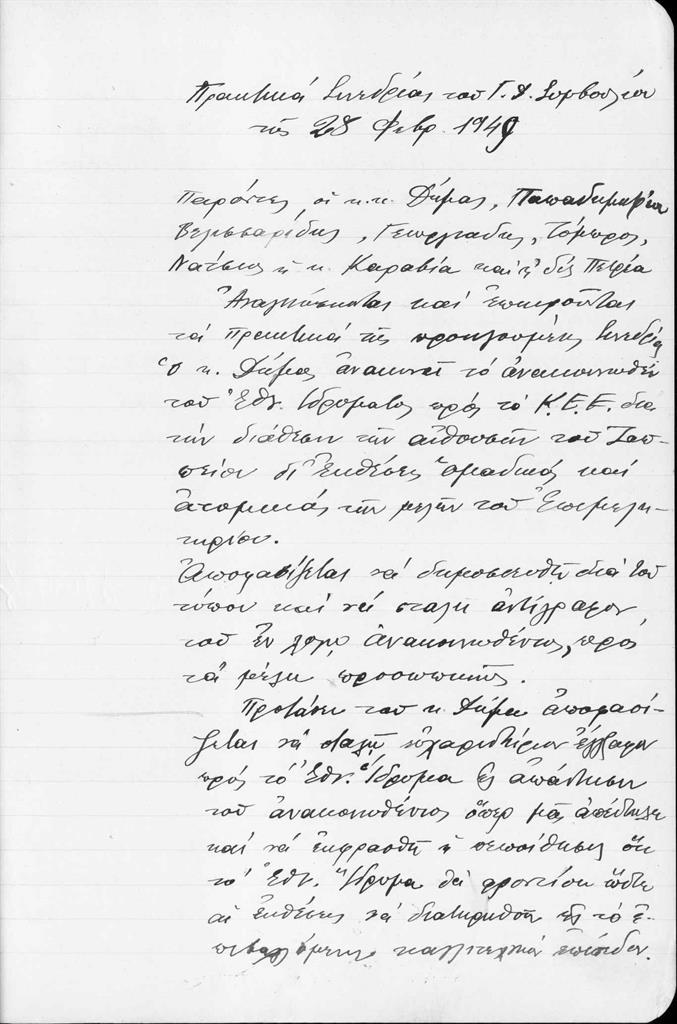 Πρακτικά Συνεδρίας του Γ. Δ. Συμβουλίου
τῆς 28 Φεβρ. 1949
Παρόντες οἱ κ.κ. Δήμας, Παπαδημητρίου
Βελισσαρίδης, Γεωργιάδης, Τόμπρος,
Νάτσιος ἡ κ. Καραβία καὶ ἡ δίς Πετρέα
Ἀναγιγνώσκονται καὶ ἐπικυροῦνται
τά Πρακτικά τῆς προηγουμένης Συνεδρίας
Ὁ κ. Δήμας ἀνακινεῖ τὸ ἀνακοινωθέν
τοῦ Ἐθν. Ἱδρύματος πρός τὸ Κ.Ε.Ε. διά
τήν διάθεσιν τῶν αἰθουσῶν τοῦ Ζαπ-
πείου δι' ἐκθέσεις ὁμαδικάς καί
ἀτομικάς τῶν μελῶν τοῦ Ἐπιμελη-
τηρίου.
Ἀποφασίζεται νά δημοσιευθῇ διά τοῦ
τύπου καί νά σταλῇ ἀντίγραφον
τοῦ ἐν λόγῳ ἀνακοινωθέντος, πρός
τά μέλη προσωπικῶς.
Προτάσει τοῦ κ. Δήμα ἀποφασί-
ζεται νά σταλῇ εὐχαριστήριον ἔγγραφον
πρός τὸ Ἐθν. Ἵδρυμα εἰς ἀπάντησιν
τοῦ ἀνακοινωθέντος ὅπερ μᾶς ἀπέστειλε
καί νά ἐκφρασθῇ ἡ πεποίθησις ὅτι
τό Ἐθν. Ἵδρυμα θά φροντίσῃ ὥστε
αἱ ἐκθέσεις νά διατηρηθοῦν εἰς τό ἐ-
πιβαλλόμενον καλλιτεχνικόν ἐπίπεδον.